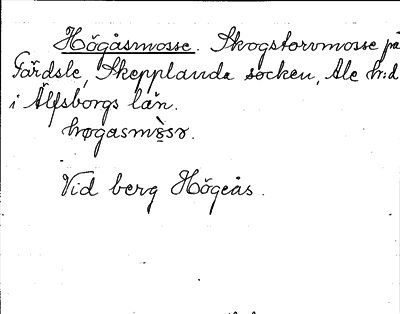 Högåsmosse. Skogstorvmosse på
Gärdsle, Skepplanda socken, Ale h:d
i Älfsborgs län.
høgasmòsə.
Vid berg Högeås.